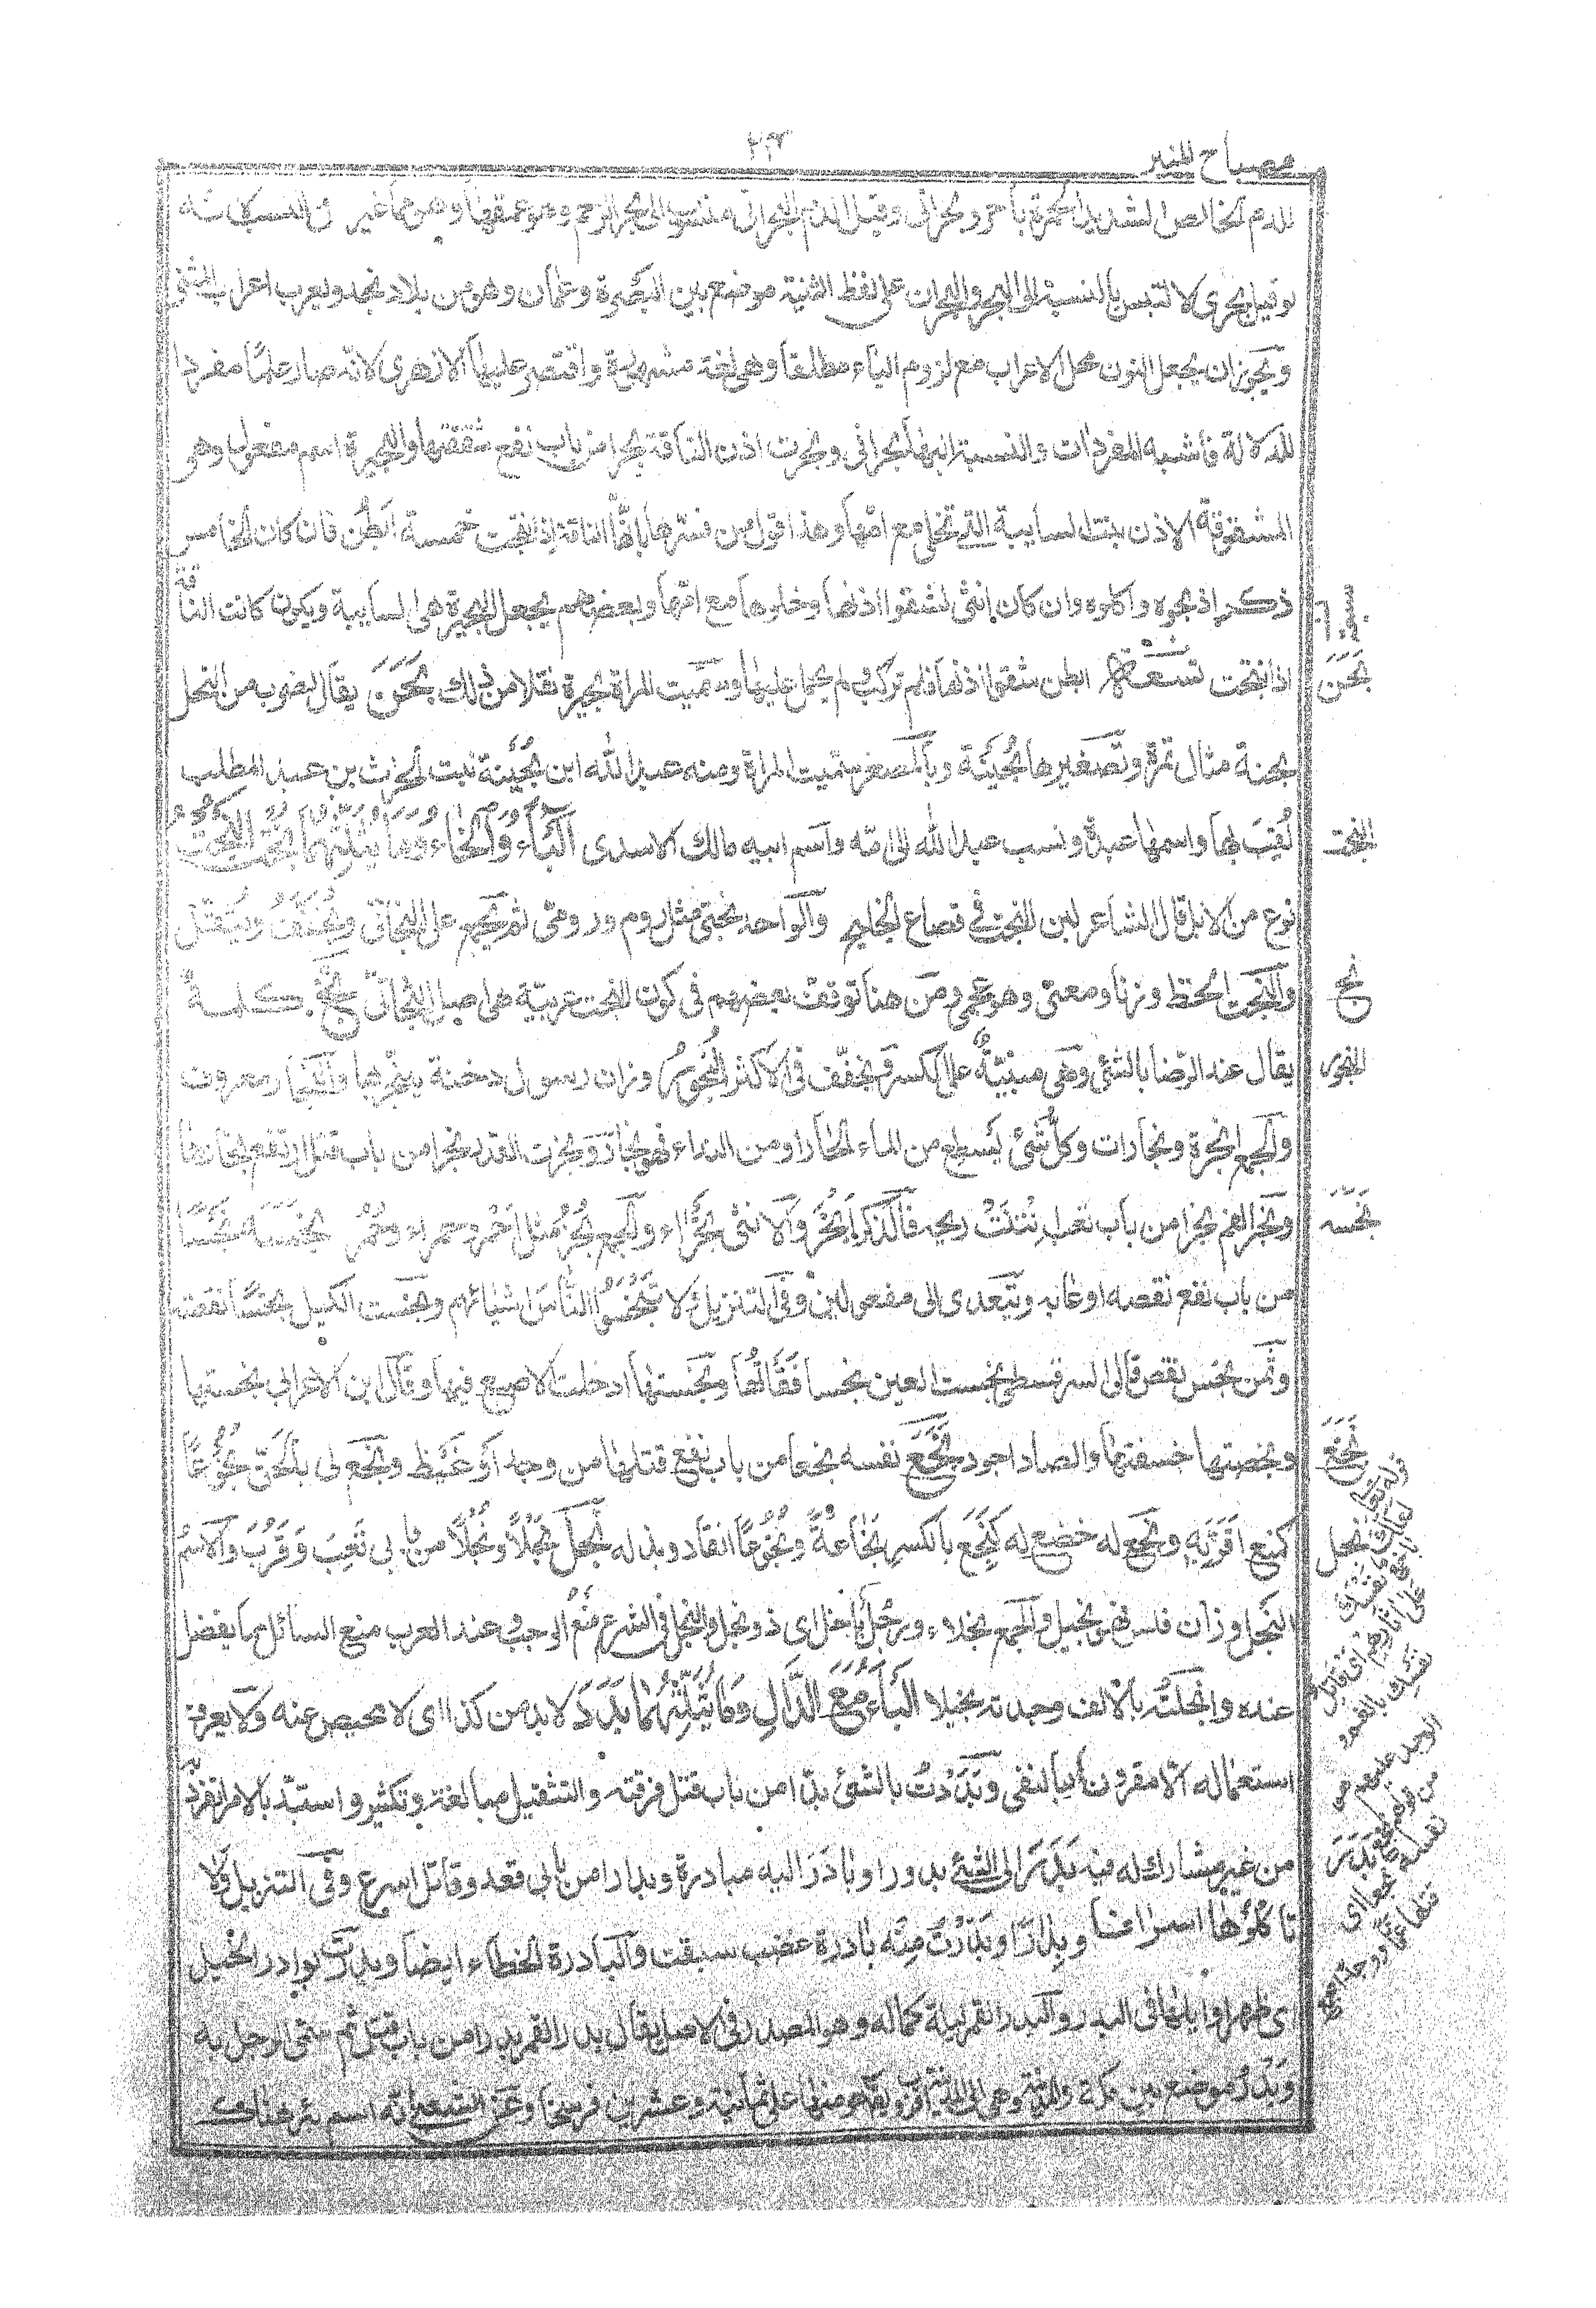 مصباح المنير
٢٣
الدم الخالص الشديد الحمرة باحر وبحرانى وقيل الدم البحرانى منسوب الى بحر الرحم وهو عمقها وهو مما غير فى النسب لانه
لو قيل بحرى لالتبس بالنسبة الى البحر والبحران على لفظ التثنية موضع بين البصرة وعمان وهو من بلاد نجد ويعرب اعراب المثنى
ويجوز ان يجعل النون محل الاعراب مع لزوم الياء مطلقا وهى لغة مشهورة واقتصر عليها الازهرى لانه صار علما مفردا
للدلالة فاشبه المفردات والنسبة اليها بحرانى وبحرت اذن الناقة بحرا من باب نفع شققتها والبحيرة اسم مفعول وهى
المشقوقة الاذن بنت السايبة التى تخلى مع امها وهذا قول من فسرها بانها الناقة اذا نتجت خمسة ابطن فان كان الخامس
ذكرا ذبحوه واكلوه وان كان انثى شقوا اذنها وخلوها مع امها وبعضهم يجعل البحيرة هى السايبة ويكون كانت الناقة
اذا نتجت ابطن شقوا اذنها فلم تركب ولم يحمل عليها وسميت المراة بحيرة نقلا من ذلك بَحَنَ يقال لضرب من النخل
بَحَنَ
بحنة مثال تمرة وتصغيرها بُحَيْنَة وبالمصغر سميت المراة ومنه عبد الله ابن بُحَيْنة بنت الحرث بن عبد المطلب
لُقِبَ بها واسمها عبدة ونسب عبد الله الى امه واسم ابيه مالك الاسدى اَلْبَاءُ وَالْخَاءُ وَمَا يُثَلِّثُهُمَا بُخْت البُخْتُ
البخت
نوع من الابل قال الشاعر لبن البخت فى قصاع الخلنج والواحد بختى مثل روم ورومى ثم يجمع على البخاتى ويُخَفَّفُ ويُثَقَّل
والبخت الحظ وزنا ومعنى وهو عجمى ومن هنا توقف بعضهم فى كون البخت عربيّة هى اصل البخاتى بَخْ كلمة
بخ
يقال عند الرضا بالشئ وهى مبنيّة على الكسر وتخفّف فى الاكثر البُخُورُ وزان رسول دخنة يتبخر بها والبخار معروف
البخور
والجمع ابخرة وبخارات وكل شئ يسطع من الماء الحار او من النداء فهو بخار وبخرت القدر بخرا من باب قتل ارتفع بخارها
وبخر الفم بخرا من باب تعب نَتُنَتْ ريحه فالذكر اَبْخَرُ والانثى بَخْرَاء والجمع بُخْرٌ مثل احمر وحمراء وحُمْر بخسه بَخْسًا
بَخَسَه
من باب نفع نقصه او عابه ويتعدى الى مفعولين وفى التنزيل ولا تَبْخَسُوا النَّاسَ اشيائهم وبخست الكيل بخسًا نقصته
وثمن بخس نقص قال السرقسطى بخست العين بخسا فَقَأْتُهَا وبخستها ادخلت الاصبع فيها وقال ابن الاعرابى بخستها
وبخصتها خسفتها والصاد اجود بَخَعَ نفسه بخعا من باب نفع قتلها من وجد او غَيْظ وبخع لى بالحق بُخُوعًا
بَخَعَ
كمنع اقرّ به وبخع له خضع له كبَخِعَ بالكسر بَخَاعَةً وبُخُوعًا انقاد وبذله بَخِلَ بَخَلًا وبُخْلًا من بابى تَعِبَ وَقَرُبَ والاسْمُ
بخل
البَخْل وزان فلس فهو بخيل والجمع بخلاء ورجل باخل اى ذو بخل والبخل فى الشرع منعُ الواجب وعند العرب منع السائل مما يفضل
عنده وابخلته بالالف وجدته بخيلا البَاءُ مَعَ الدَّالِ وَمَا يُثَلِّثُهُمَا بَدَدَ لا بد من كذا اى لا محيص عنه ولا يعرف
استعماله الا مقرونا بالنفى وبَدَدْتُ بالشئ بدّا من باب قتل فرقته والتثقيل مبالغة وتكثير واستبدّ بالامر انفرد به
من غير مشارك له فيه بَدَرَ الى الشئ بدورا وبَادَرَ اليه مبادرة وبدارا من بابى قعد وقاتل اسرع وفى التنزيل ولا
بَدَرَ
تاكلوها اسرافا وبِدَارًا وبَدَرَتْ مِنْه بادرة غضب سبقت والبادرة الخطاء ايضا وبدرت بوادر الخيل
اى ظهر اوايلها فى البدر والبدر القمر ليلة كماله وهو المصدر فى الاصل يقال بدر القمر بدرا من باب قتل ثم سمى الرجل به
وبَدْرُ موضع بين مكة والمدينة وهى الى المدينة اقرب ويقال هو منها على ثمانية وعشرين فرسخا وعَنِ الشعبى انه اسم بئر هناك
قوله تعالى
لعلك باخع نفسك
على اثارهم اى قاتل
نفسك بالغم و
الوجد عليهم
من قولهم بخع
نفسه بخعا اى
قتلها غمّا ووجدا